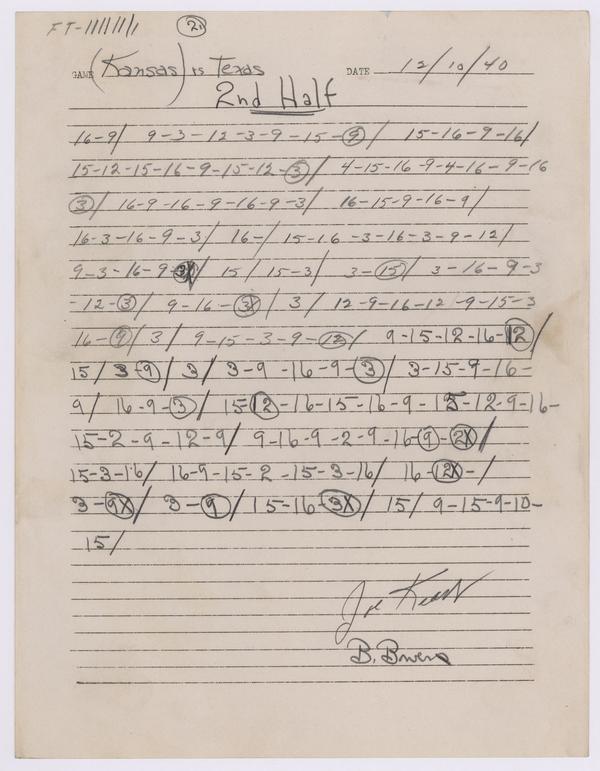 FT-///////
2)
GAME (Kansas) vs Texas DATE 12/10/40
2nd Half
16-9/ 9-3-12-3-9-15-9/ 15-16-9-16/
15-12-15-16-9-15-12-3/ 4-15-16-9-4-16-9-16
3/ 16-9-16-9-16-9-3/ 16-15-9-16-9/
16-3-16-9-3/ 16-/ 15-16-3-16-3-9-12/
9-3-16-9-3X/ 15/ 15-3/ 3-15/ 3-16-9-3
-12-3/ 9-16-3X/ 3/ 12-9-16-12-9-15-3
16-9/ 3/ 9-15-3-9-12/ 9-15-12-16-12/
15/ 3-9/ 3/ 3-9-16-9-3/ 3-15-9-16-
9/ 16-9-3/ 15-12-16-15-16-9-15-12-9-16-
15-2-9-12-9/ 9-16-9-2-9-16-9-2X/
15-3-16/ 16-9-15-2-15-3-16/ 16-12X-/
3-9X/ 3-9/ 15-16-3X/ 15/ 9-15-9-10-
15/
B. Bwens